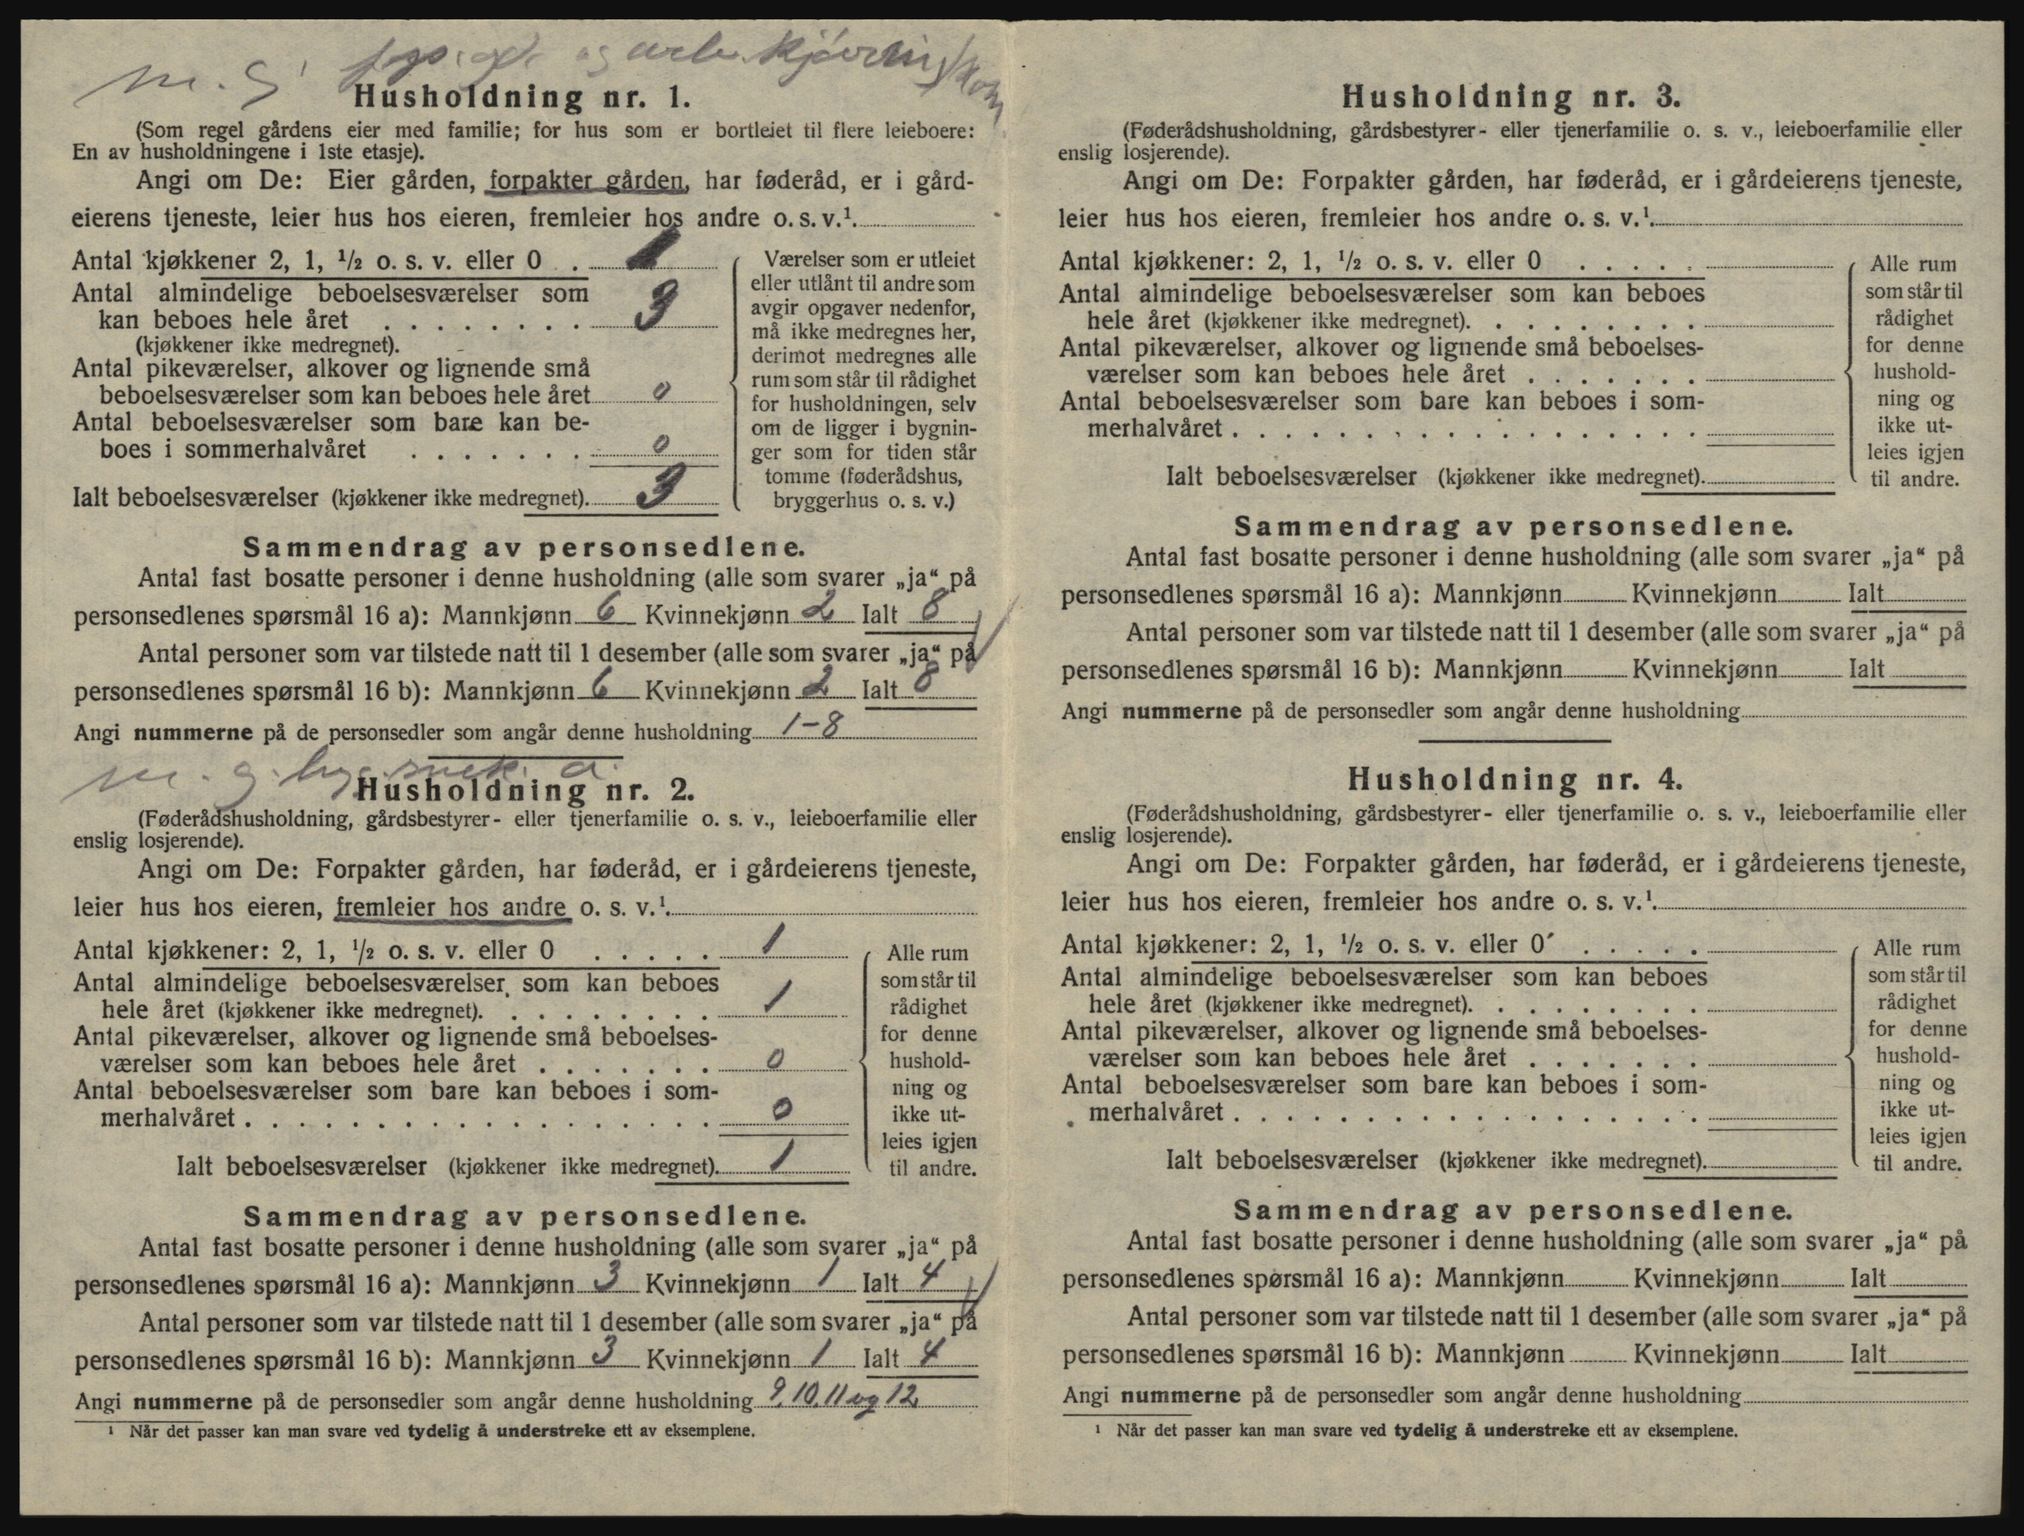 m. g. og arb. kjøring
Husholdning nr. 1.
(Som regel gårdens eier med familie; for hus som er bortleiet til flere leieboere:
En av husholdningene i 1ste etasje).
Angi om De: Eier gården, forpakter gården, har føderåd, er i gård-
eierens tjeneste, leier hus hos eieren, fremleier hos andre o. s. v.¹
Antal kjøkkener 2, 1, ½ o. s. v. eller 0 . 1
Antal almindelige beboelsesværelser som
kan beboes hele året . . . . . . . . 3
(kjøkkener ikke medregnet).
Antal pikeværelser, alkover og lignende små
beboelsesværelser som kan beboes hele året 0
Antal beboelsesværelser som bare kan be-
boes i sommerhalvåret . . . . . . . 0
Ialt beboelsesværelser (kjøkkener ikke medregnet). 3
Værelser som er utleiet
eller utlånt til andre som
avgir opgaver nedenfor,
må ikke medregnes her,
derimot medregnes alle
rum som står til rådighet
for husholdningen, selv
om de ligger i bygnin-
ger som for tiden står
tomme (føderådshus,
bryggerhus o. s. v.)
Sammendrag av personsedlene.
Antal fast bosatte personer i denne husholdning (alle som svarer „ja“ på
personsedlenes spørsmål 16 a): Mannkjønn 6 Kvinnekjønn 2 Ialt 8
Antal personer som var tilstede natt til 1 desember (alle som svarer „ja“ på
personsedlenes spørsmål 16 b): Mannkjønn 6 Kvinnekjønn 2 Ialt 8
Angi nummerne på de personsedler som angår denne husholdning 1-8
m. g. bygn.snek. a.
Husholdning nr. 2.
(Føderådshusholdning, gårdsbestyrer- eller tjenerfamilie o. s. v., leieboerfamilie eller
enslig losjerende).
Angi om De: Forpakter gården, har føderåd, er i gårdeierens tjeneste,
leier hus hos eieren, fremleier hos andre o. s. v.¹
Antal kjøkkener: 2, 1, ½ o. s. v. eller 0 . . . . . 1
Antal almindelige beboelsesværelser som kan beboes
hele året (kjøkkener ikke medregnet). . . . . . . . . 1
Antal pikeværelser, alkover og lignende små beboelses-
værelser som kan beboes hele året . . . . . . . 0
Antal beboelsesværelser som bare kan beboes i som-
merhalvåret . . . . . . . . . . . . . . . . . . 0
Ialt beboelsesværelser (kjøkkener ikke medregnet). 1
Alle rum
som står til
rådighet
for denne
hushold-
ning og
ikke ut-
leies igjen
til andre.
Sammendrag av personsedlene.
Antal fast bosatte personer i denne husholdning (alle som svarer „ja“ på
personsedlenes spørsmål 16 a): Mannkjønn 3 Kvinnekjønn 1 Ialt 4
Antal personer som var tilstede natt til 1 desember (alle som svarer „ja“ på
personsedlenes spørsmål 16 b): Mannkjønn 3 Kvinnekjønn 1 Ialt 4
Angi nummerne på de personsedler som angår denne husholdning 9, 10, 11 og 12
¹ Når det passer kan man svare ved tydelig å understreke ett av eksemplene.
Husholdning nr. 3.
(Føderådshusholdning, gårdsbestyrer- eller tjenerfamilie o. s. v., leieboerfamilie eller
enslig losjerende).
Angi om De: Forpakter gården, har føderåd, er i gårdeierens tjeneste,
leier hus hos eieren, fremleier hos andre o. s. v.¹
Antal kjøkkener: 2, 1, ½ o. s. v. eller 0 . . . . .
Antal almindelige beboelsesværelser som kan beboes
hele året (kjøkkener ikke medregnet). . . . . . . . .
Antal pikeværelser, alkover og lignende små beboelses-
værelser som kan beboes hele året . . . . . . .
Antal beboelsesværelser som bare kan beboes i som-
merhalvåret . . . . . . . . . . . . . . . . . .
Ialt beboelsesværelser (kjøkkener ikke medregnet).
Alle rum
som står til
rådighet
for denne
hushold-
ning og
ikke ut-
leies igjen
til andre.
Sammendrag av personsedlene.
Antal fast bosatte personer i denne husholdning (alle som svarer „ja“ på
personsedlenes spørsmål 16 a): Mannkjønn Kvinnekjønn Ialt
Antal personer som var tilstede natt til 1 desember (alle som svarer „ja“ på
personsedlenes spørsmål 16 b): Mannkjønn Kvinnekjønn Ialt
Angi nummerne på de personsedler som angår denne husholdning
Husholdning nr. 4.
(Føderådshusholdning, gårdsbestyrer- eller tjenerfamilie o. s. v., leieboerfamilie eller
enslig losjerende).
Angi om De: Forpakter gården, har føderåd, er i gårdeierens tjeneste,
leier hus hos eieren, fremleier hos andre o. s. v.¹
Antal kjøkkener: 2, 1, ½ o. s. v. eller 0 . . . . .
Antal almindelige beboelsesværelser som kan beboes
hele året (kjøkkener ikke medregnet). . . . . . . . .
Antal pikeværelser, alkover og lignende små beboelses-
værelser som kan beboes hele året . . . . . . .
Antal beboelsesværelser som bare kan beboes i som-
merhalvåret . . . . . . . . . . . . . . . . . .
Ialt beboelsesværelser (kjøkkener ikke medregnet).
Alle rum
som står til
rådighet
for denne
hushold-
ning og
ikke ut-
leies igjen
til andre.
Sammendrag av personsedlene.
Antal fast bosatte personer i denne husholdning (alle som svarer „ja“ på
personsedlenes spørsmål 16 a): Mannkjønn Kvinnekjønn Ialt
Antal personer som var tilstede natt til 1 desember (alle som svarer „ja“ på
personsedlenes spørsmål 16 b): Mannkjønn Kvinnekjønn Ialt
Angi nummerne på de personsedler som angår denne husholdning
¹ Når det passer kan man svare ved tydelig å understreke ett av eksemplene.